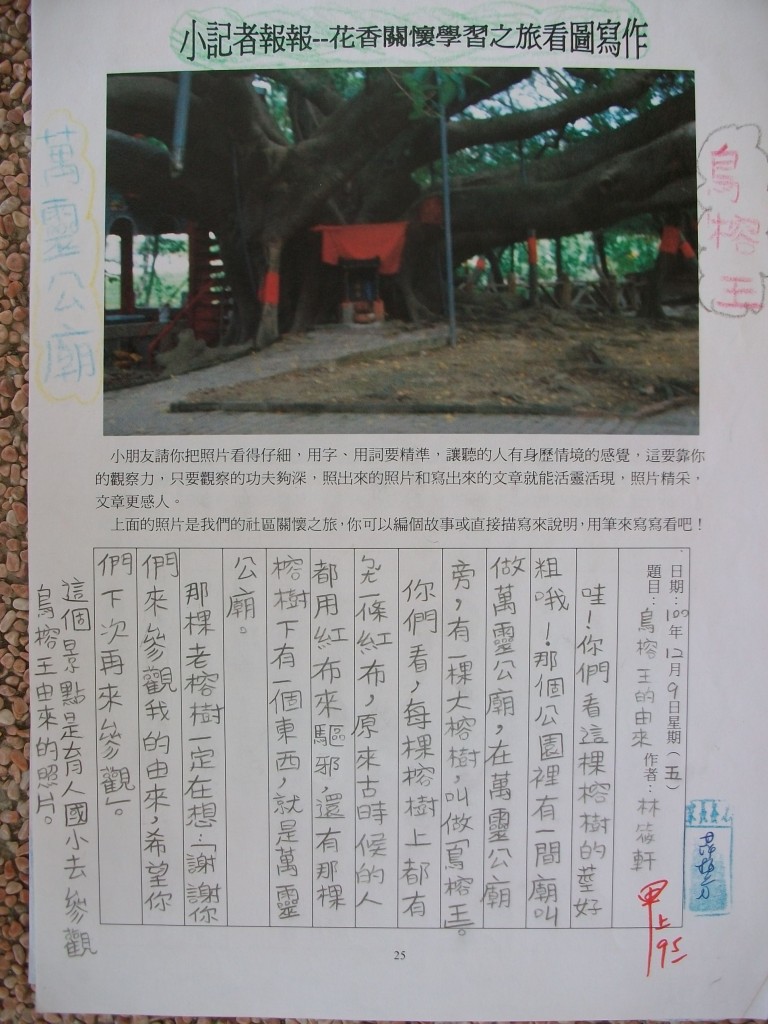 小記者報報--花香關懷學習之旅看圖寫作
萬靈公廟
鳥榕王
小朋友請你把照片看得仔細，用字、用詞要精準，讓聽的人有身歷情境的感覺，這要靠你
的觀察力，只要觀察的功夫夠深，照出來的照片和寫出來的文章就能活靈活現，照片精采，
文章更感人。
上面的照片是我們的社區關懷之旅，你可以編個故事或直接描寫來說明，用筆來寫寫看吧！
日期：100年12月9日星期（五）
題目：鳥榕王的由來 作者：林筱軒
哇！你們看這棵榕樹的莖好
粗哦！那個公園裡有一間廟叫
做萬靈公廟，在萬靈公廟
旁，有一棵大榕樹，叫做「鳥榕王」。
你們看，每棵榕樹上都有
一條紅布，原來古時候的人
都用紅布來驅邪，還有那棵
榕樹下有一個東西，就是萬靈
公廟。
那棵老榕樹一定在想：「謝謝你
們來參觀我的由來，希望你
們下次再來參觀」。
這個景點是育人國小去參觀
鳥榕王由來的照片。
甲上
95
25